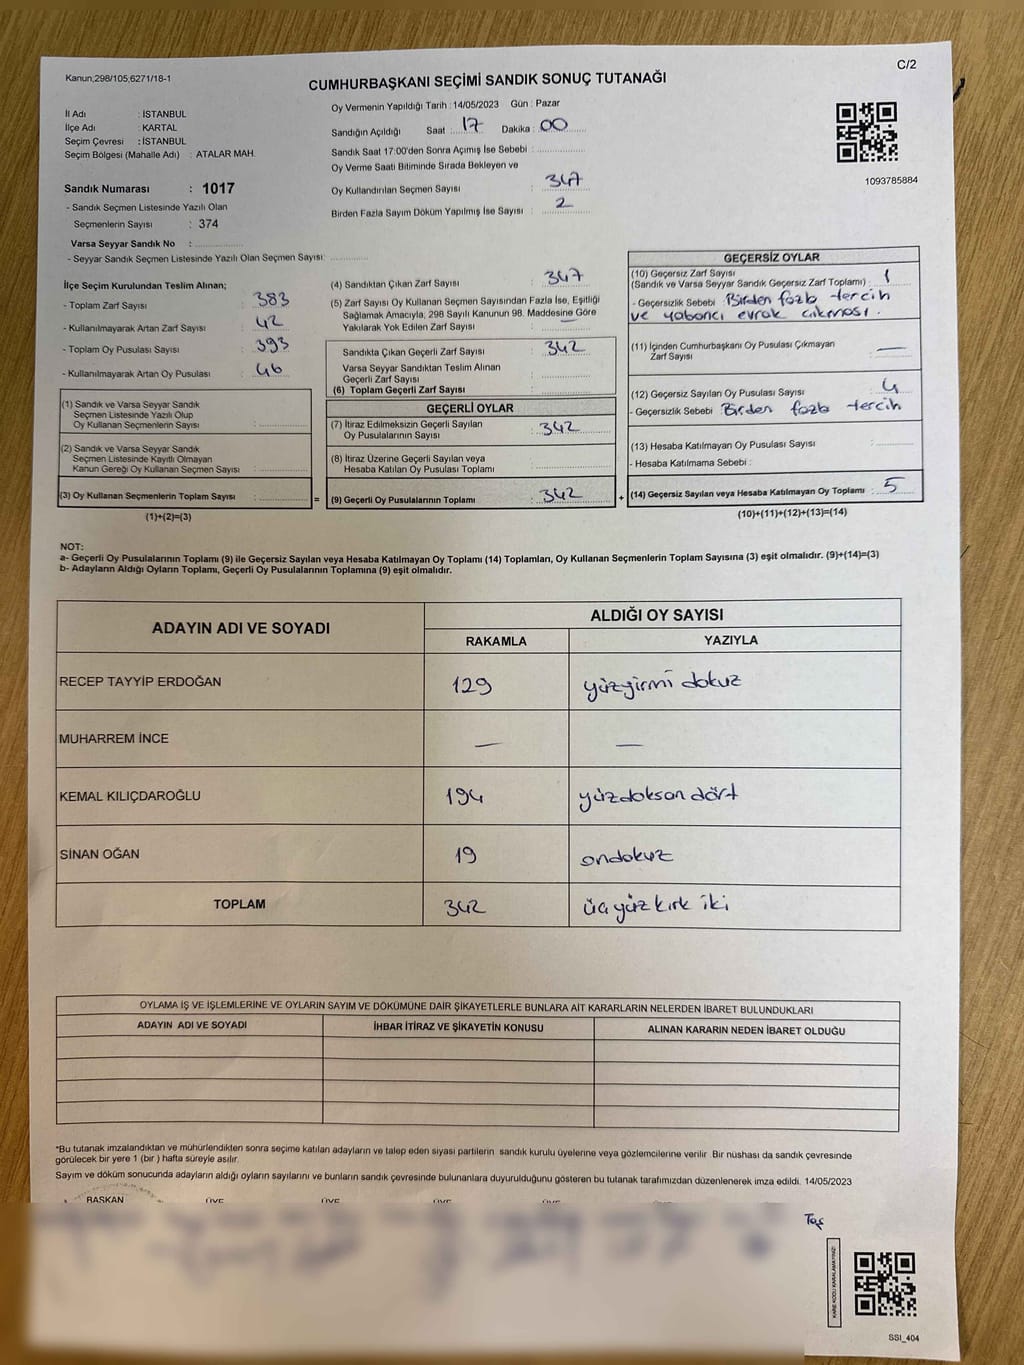 Kanun;298/105;6271/18-1
C/2
CUMHURBAŞKANI SEÇİMİ SANDIK SONUÇ TUTANAĞI
İl Adı : İSTANBUL
İlçe Adı : KARTAL
Seçim Çevresi : İSTANBUL
Seçim Bölgesi (Mahalle Adı) : ATALAR MAH.
Sandık Numarası : 1017
- Sandık Seçmen Listesinde Yazılı Olan
Seçmenlerin Sayısı : 374
Varsa Seyyar Sandık No :
- Seyyar Sandık Seçmen Listesinde Yazılı Olan Seçmen Sayısı:
Oy Vermenin Yapıldığı Tarih : 14/05/2023 Gün : Pazar
Sandığın Açıldığı Saat : 17 Dakika : 00
Sandık Saat 17:00'den Sonra Açımış İse Sebebi :
Oy Verme Saati Bitiminde Sırada Bekleyen ve
Oy Kullandırılan Seçmen Sayısı : 347
Birden Fazla Sayım Döküm Yapılmış İse Sayısı : 2
1093785884
İlçe Seçim Kurulundan Teslim Alınan;
- Toplam Zarf Sayısı : 383
- Kullanılmayarak Artan Zarf Sayısı : 42
- Toplam Oy Pusulası Sayısı : 393
- Kullanılmayarak Artan Oy Pusulası : 46
(1) Sandık ve Varsa Seyyar Sandık
Seçmen Listesinde Yazılı Olup
Oy Kullanan Seçmenlerin Sayısı :
(2) Sandık ve Varsa Seyyar Sandık
Seçmen Listesinde Kayıtlı Olmayan
Kanun Gereği Oy Kullanan Seçmen Sayısı :
(3) Oy Kullanan Seçmenlerin Toplam Sayısı :
(1)+(2)=(3)
(4) Sandıktan Çıkan Zarf Sayısı : 347
(5) Zarf Sayısı Oy Kullanan Seçmen Sayısından Fazla İse, Eşitliği
Sağlamak Amacıyla, 298 Sayılı Kanunun 98. Maddesine Göre
Yakılarak Yok Edilen Zarf Sayısı : —
Sandıkta Çıkan Geçerli Zarf Sayısı : 342
Varsa Seyyar Sandıktan Teslim Alınan
Geçerli Zarf Sayısı :
(6) Toplam Geçerli Zarf Sayısı :
GEÇERLİ OYLAR
(7) İtiraz Edilmeksizin Geçerli Sayılan
Oy Pusulalarının Sayısı : 342
(8) İtiraz Üzerine Geçerli Sayılan veya
Hesaba Katılan Oy Pusulası Toplamı :
= (9) Geçerli Oy Pusulalarının Toplamı : 342 +
GEÇERSİZ OYLAR
(10) Geçersiz Zarf Sayısı
(Sandık ve Varsa Seyyar Sandık Geçersiz Zarf Toplamı) : 1
- Geçersizlik Sebebi : Birden fazla tercih
ve yabancı evrak çıkması.
(11) İçinden Cumhurbaşkanı Oy Pusulası Çıkmayan
Zarf Sayısı : —
(12) Geçersiz Sayılan Oy Pusulası Sayısı : 4
- Geçersizlik Sebebi : Birden fazla tercih
(13) Hesaba Katılmayan Oy Pusulası Sayısı :
- Hesaba Katılmama Sebebi :
(14) Geçersiz Sayılan veya Hesaba Katılmayan Oy Toplamı : 5
(10)+(11)+(12)+(13)=(14)
NOT:
a- Geçerli Oy Pusulalarının Toplamı (9) ile Geçersiz Sayılan veya Hesaba Katılmayan Oy Toplamı (14) Toplamları, Oy Kullanan Seçmenlerin Toplam Sayısına (3) eşit olmalıdır. (9)+(14)=(3)
b- Adayların Aldığı Oyların Toplamı, Geçerli Oy Pusulalarının Toplamına (9) eşit olmalıdır.
ADAYIN ADI VE SOYADI
ALDIĞI OY SAYISI
RAKAMLA YAZIYLA
RECEP TAYYİP ERDOĞAN 129 yüzyirmi dokuz
MUHARREM İNCE — —
KEMAL KILIÇDAROĞLU 194 yüzdoksan dört
SİNAN OĞAN 19 ondokuz
TOPLAM 342 üçyüz kırk iki
OYLAMA İŞ VE İŞLEMLERİNE VE OYLARIN SAYIM VE DÖKÜMÜNE DAİR ŞİKAYETLERLE BUNLARA AİT KARARLARIN NELERDEN İBARET BULUNDUKLARI
ADAYIN ADI VE SOYADI İHBAR İTİRAZ VE ŞİKAYETİN KONUSU ALINAN KARARIN NEDEN İBARET OLDUĞU
*Bu tutanak imzalandıktan ve mühürlendikten sonra seçime katılan adayların ve talep eden siyasi partilerin sandık kurulu üyelerine veya gözlemcilerine verilir. Bir nüshası da sandık çevresinde
görülecek bir yere 1 (bir ) hafta süreyle asılır.
Sayım ve döküm sonucunda adayların aldığı oyların sayılarını ve bunların sandık çevresinde bulunanlara duyurulduğunu gösteren bu tutanak tarafımızdan düzenlenerek imza edildi. 14/05/2023
BAŞKAN ÜYE ÜYE ÜYE ÜYE
KARE KODU KARALAMAYINIZ!
SSI_404